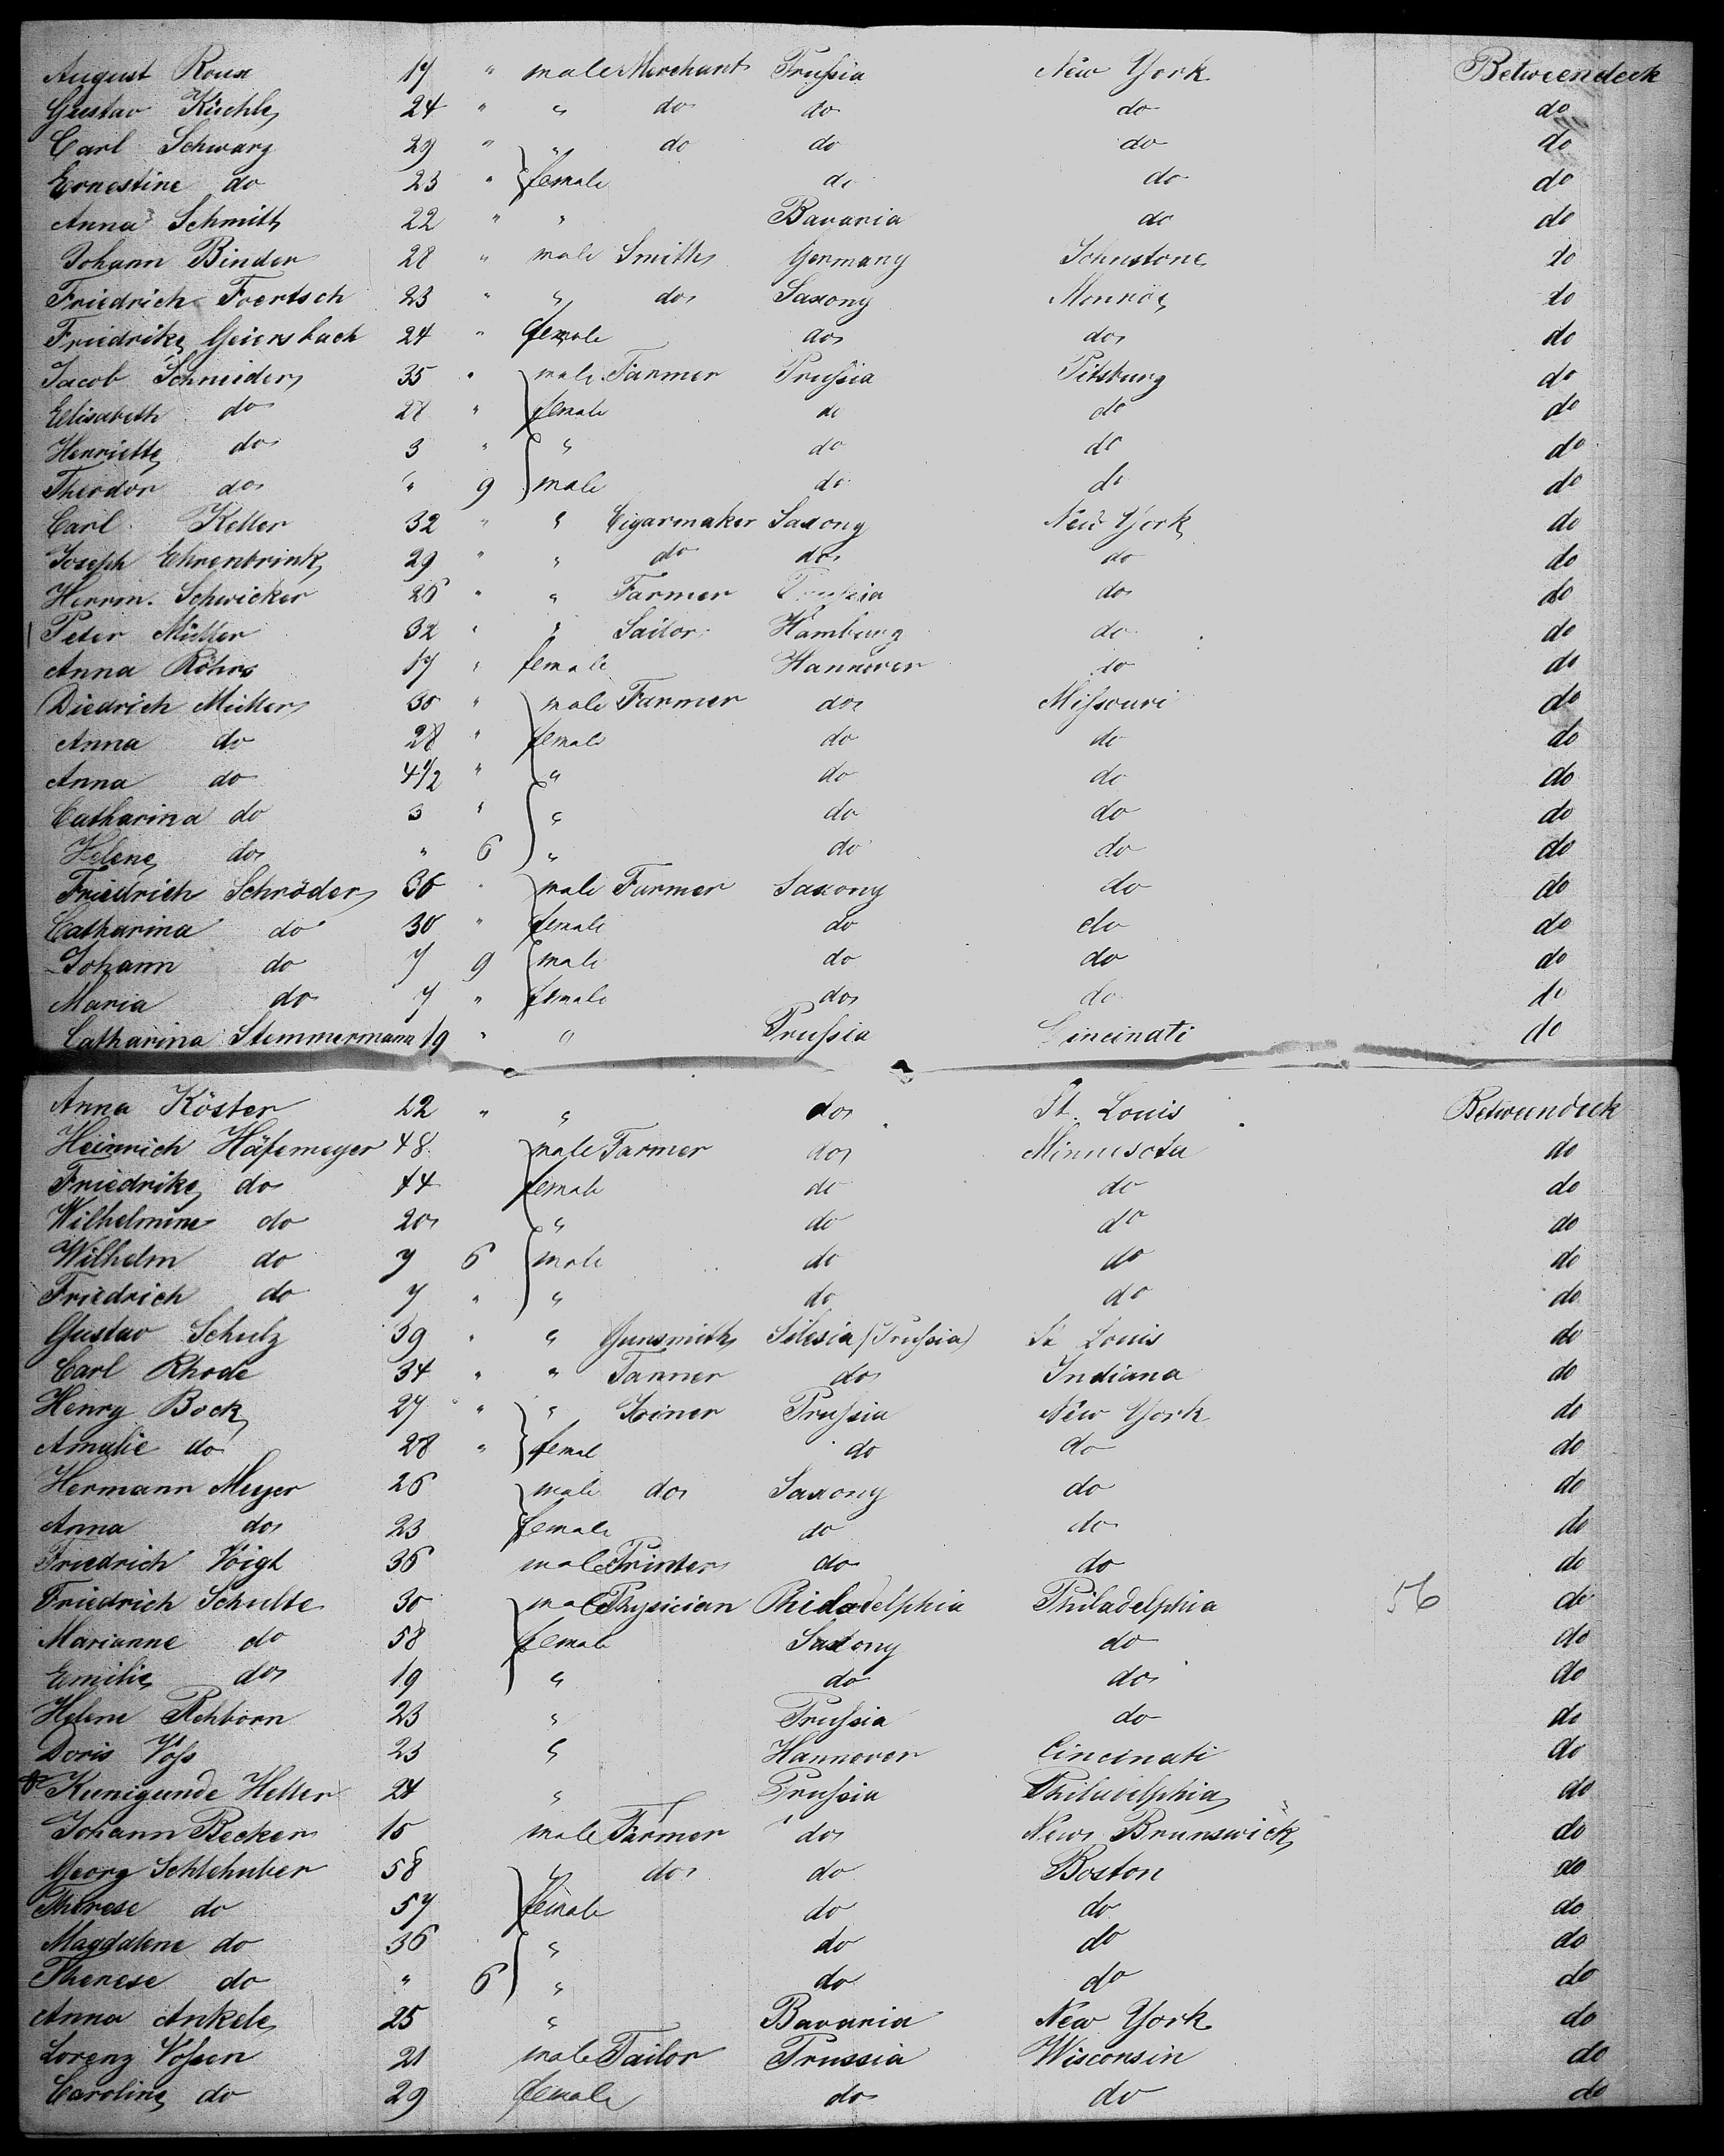 August Roux 17 " male Merchant Prußia New York Betweendeck
Gustav Küchle 24 " " do do do do
Carl Schwarz 29 " " do do do do
Ernestine do 23 " female do do do
Anna Schmitt 22 " " Bavaria do do
Johann Binder 28 " male Smith Germany Johnstone do
Friedrich Foertsch 23 " " do Saxony Monroe do
Friedrike Geiersbach 24 " female do do do
Jacob Schneider 35 " male Farmer Prußia Pitsburg do
Elisabeth do 28 " female do do do
Henriette do 3 " " do do do
Theodor do " 9 male do do do
Carl Keller 32 " " Cigarmaker Saxony New York do
Joseph Ehrenbrink 29 " " do do do do
Herrm. Schwicker 26 " " Farmer Prußia do do
Peter Müller 32 " " Sailor Hamburg do do
Anna Röhrs 17 " female Hannover do do
Diedrich Müller 30 " male Farmer do Mißouri do
Anna do 28 " female do do do
Anna do 4 1/2 " " do do do
Catharina do 3 " " do do do
Helene do " 6 " do do do
Friedrich Schröder 36 " male Farmer Saxony do do
Catharina do 30 " female do do do
Johann do 7 9 male do do do
Maria do 7 " female do do do
Catharina Stemmermann 19 " " Prußia Cincinati do
Anna Köster 22 " " do St. Louis Betweendeck
Heinrich Häfemeyer 48 male Farmer do Minnesota do
Friedrike do 44 female do do do
Wilhelmine do 20 " do do do
Wilhelm do 9 6 male do do do
Friedrich do 7 " " do do do
Gustav Schulz 39 " " Gunsmith Silesia (Prußia) St Louis do
Carl Rhode 34 " " Tanner do Indiana do
Henry Bock 27 " " Joiner Prußia New York do
Amalie do 28 " femal do do do
Hermann Meyer 26 male do Saxony do do
Anna do 23 female do do do
Friedrich Voigt 36 male Printer do do do
Friedrich Schulte 30 male Physician Philadelphia Philadelphia 56 do
Marianne do 58 female Saxony do do
Emilie do 19 " do do do
Helene Rehborn 23 " Prußia do do
Doris Voß 23 " Hannover Cincinati do
Kunigunde Heller 24 " Prußia Philadelphia do
Johann Becker 15 male Farmer do New Brunswick do
Georg Schlehuber 58 " do do Boston do
Therese do 57 female do do do
Magdalene do 36 " do do do
Therese do " 6 " do do do
Anna Ankele 25 " Bavaria New York do
Lorenz Voßen 21 male Tailor Prussia Wisconsin do
Caroline do 29 female do do do